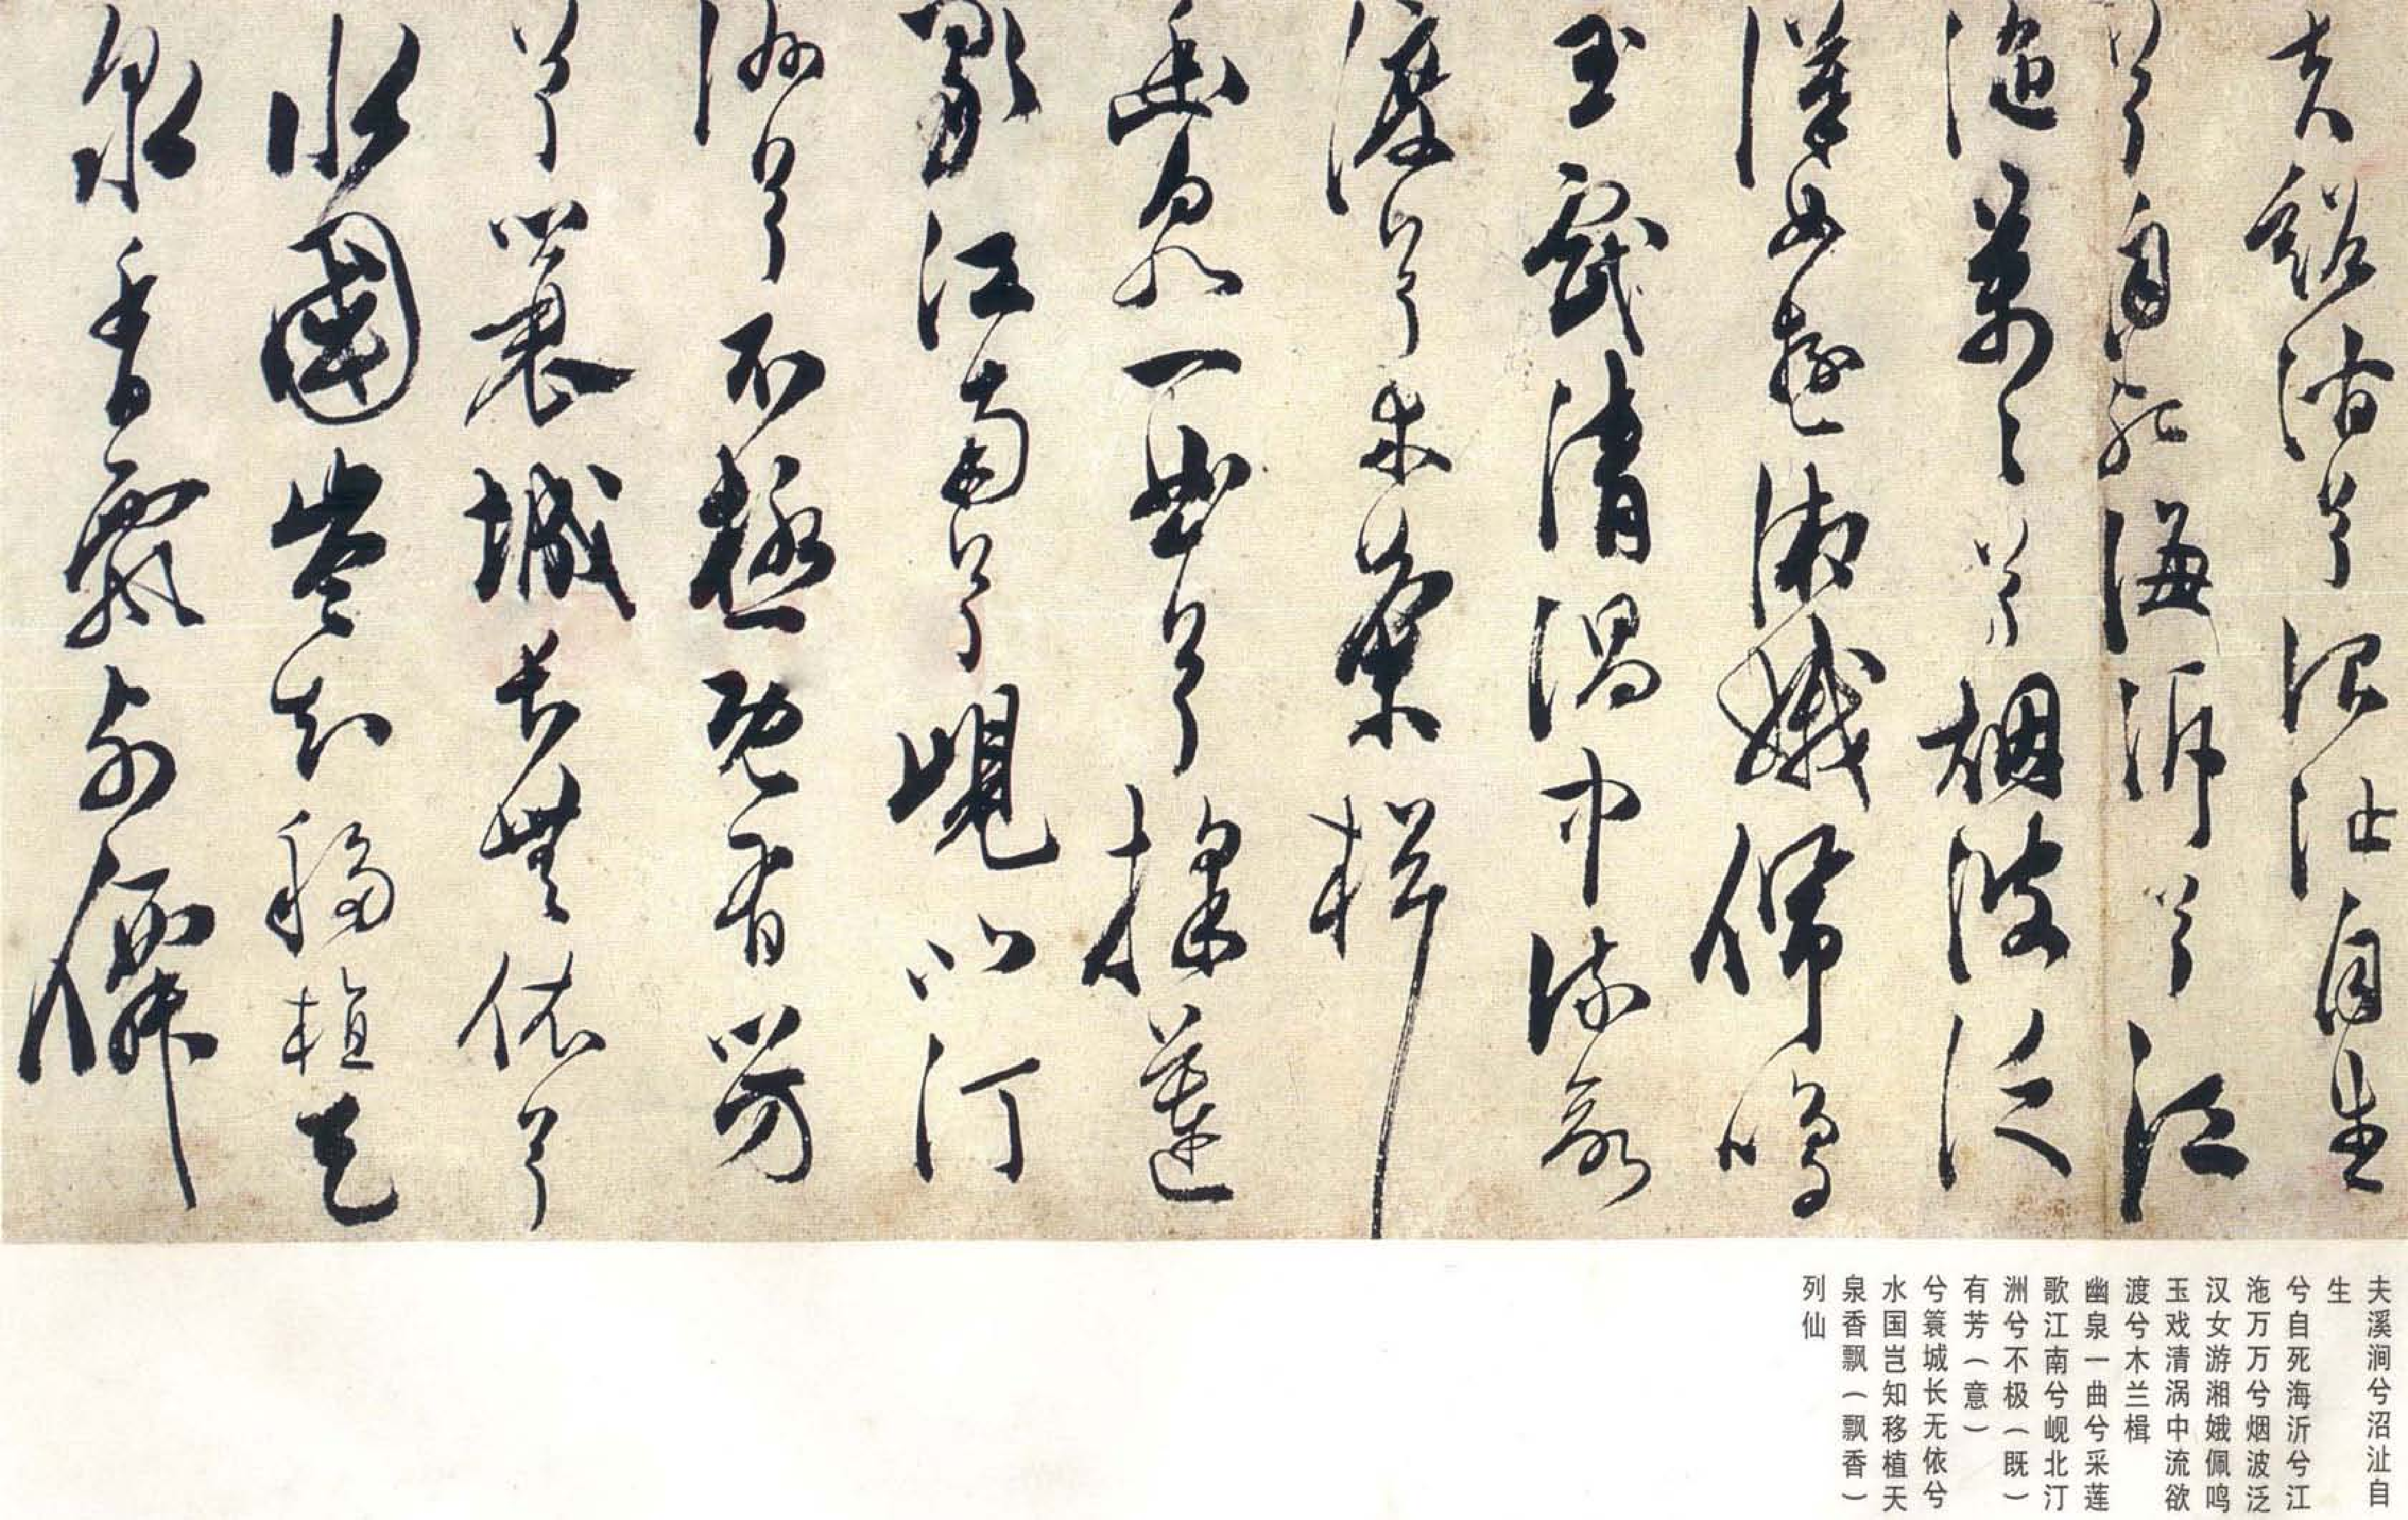 夫谿澗兮沼沚自生
兮自死海沂兮江
沲萬々兮烟波泛
漢女遊湘娥佩鳴
玉戲清渦中流欲
渡兮木蘭楫
幽泉一曲兮採蓮
歌江南兮峴北汀
洲兮不極既有芳
兮蓑城長無依兮
水國豈知移植天
泉香飄列僊
夫溪涧兮沼沚自
生
兮自死海沂兮江
沲万万兮烟波泛
汉女游湘娥佩鸣
玉戏清涡中流欲
渡兮木兰楫
幽泉一曲兮采莲
歌江南兮岘北汀
洲兮不极（既）
有芳（意）
兮簑城长无依兮
水国岂知移植天
泉香飘（飘香）
列仙